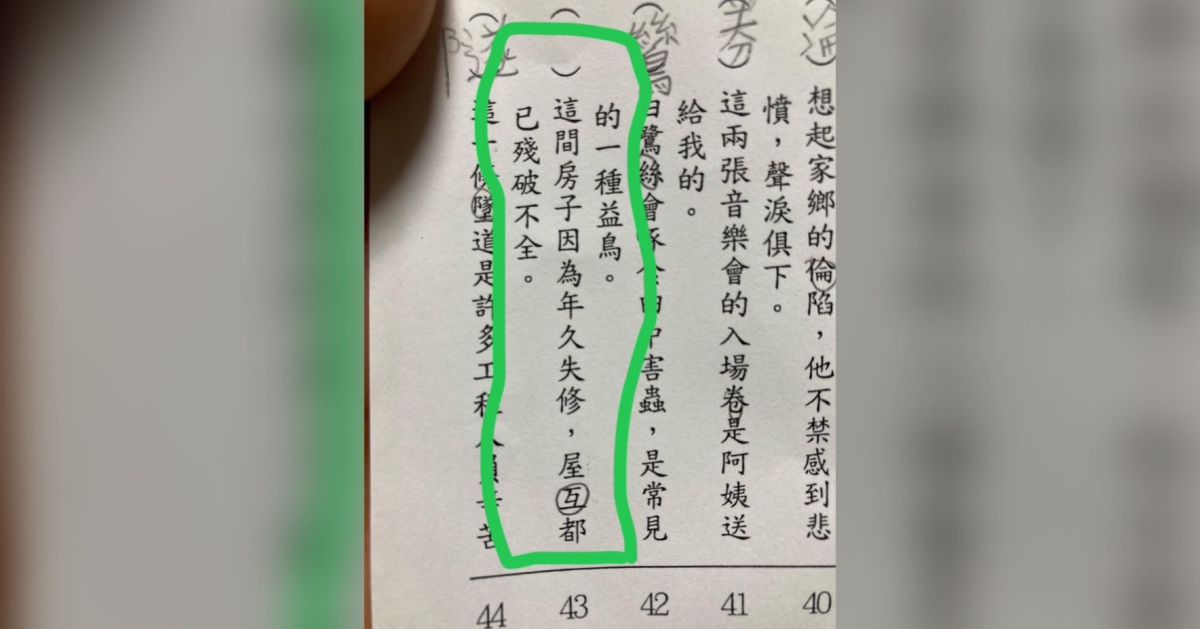 （淪）想起家鄉的倫陷，他不禁感到悲
憤，聲淚俱下。
（券）這兩張音樂會的入場卷是阿姨送
給我的。
（鷥）白鷺絲會啄食田中害蟲，是常見
的一種益鳥。
（　）這間房子因為年久失修，屋互都
已殘破不全。
（隧）這一條墜道是許多工程人員辛苦
40
41
42
43
44